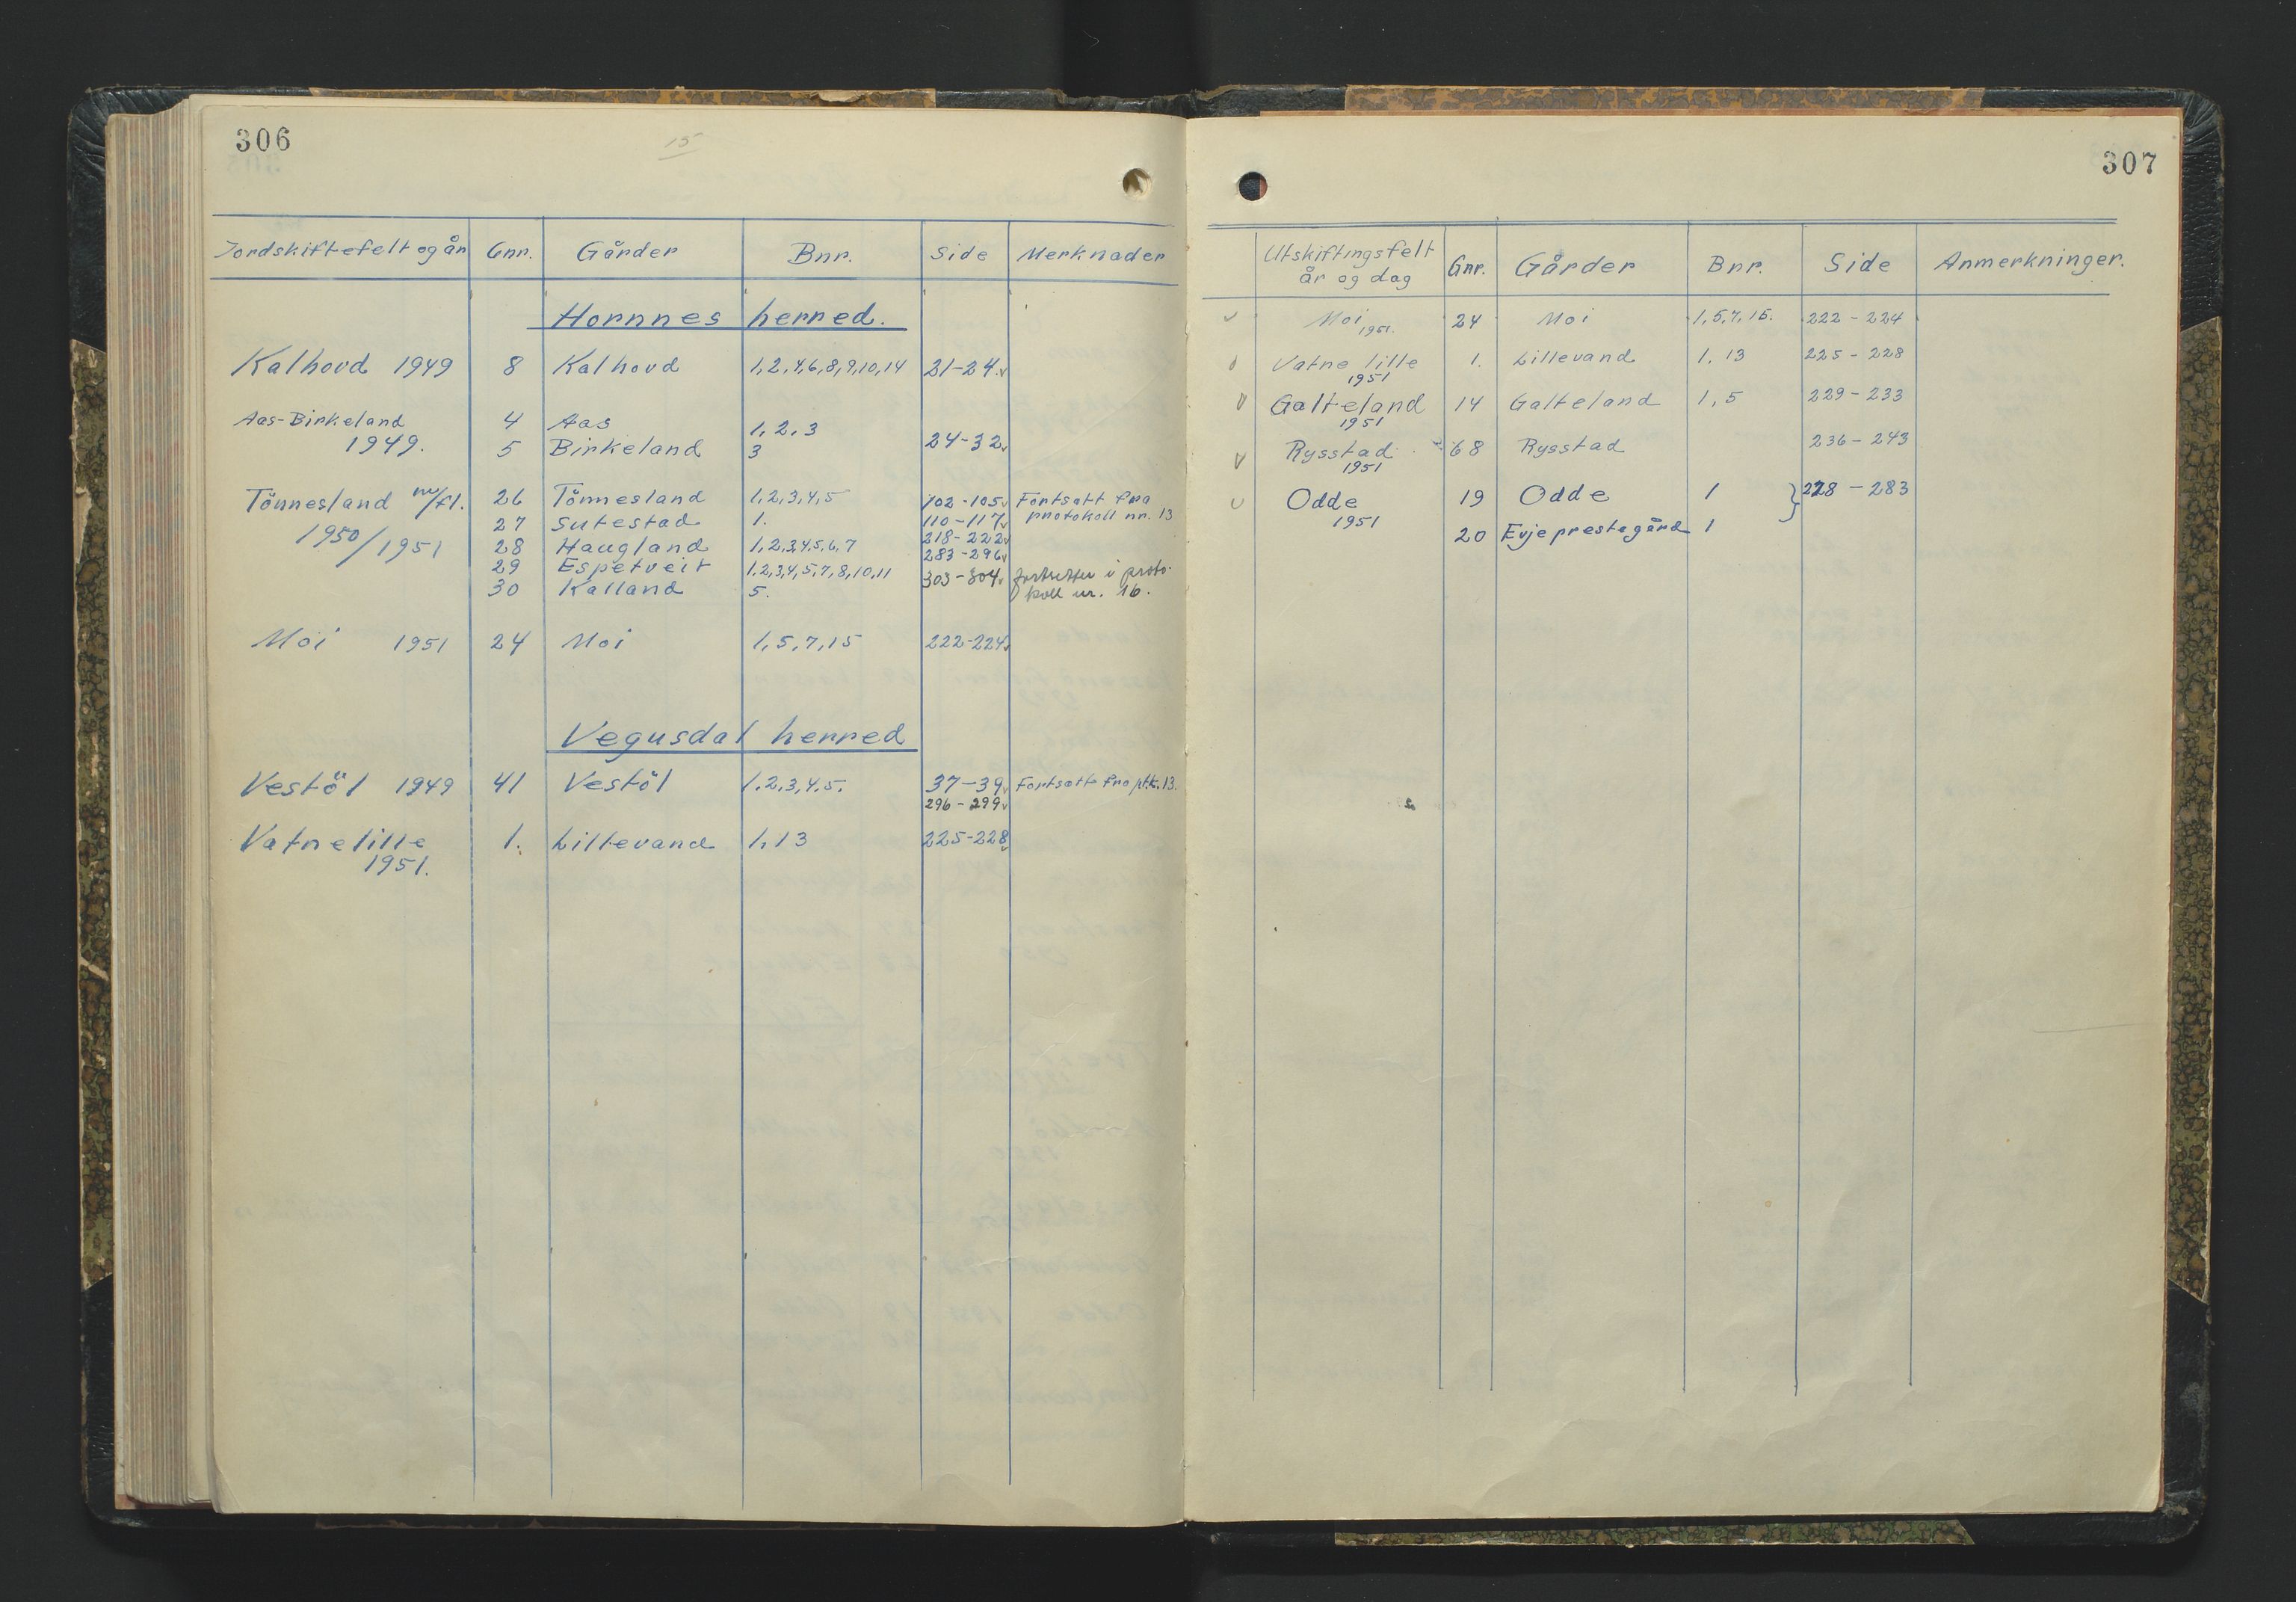 306
15
Jordskiftefelt og år Gnr. Gårder Bnr. Side Merknader
Hornnes herred.
Kalhovd 1949 8 Kalhovd 1,2,4,6,8,9,10,14 21-24
Aas-Birkeland 4 Aas 1,2,3
1949. 5 Birkeland 3 24-32
Tönnesland m/fl. 26 Tönnesland 1,2,3,4,5 102-105 Fortsatt fra
27 Sutestad 1. 110-117 protokoll nr. 13
1950/1951 28 Haugland 1,2,3,4,5,6,7 218-222
29 Espetveit 1,2,3,4,5,7,8,10,11 283-296
30 Kalland 5. 303-304 fortsetter i proto-
koll nr. 16.
Moi 1951 24 Moi 1,5,7,15 222-224
Vegusdal herred
Vestöl 1949 41 Vestöl 1,2,3,4,5. 37-39 Fortsatt fra ptk. 13.
296-299
Vatne lille 1. Lillevand 1,13 225-228
1951.
307
Utskiftingsfelt
år og dag Gnr. Gårder Bnr. Side Anmerkninger.
Moi 24 Moi 1,5,7,15. 222-224
1951.
Vatne lille 1. Lillevand 1,13 225-228
1951
Galteland 14 Galteland 1,5 229-233
1951
Rysstad 68 Rysstad 236-243
1951
Odde 19 Odde 1 } 278-283
1951
20 Evje prestegård 1